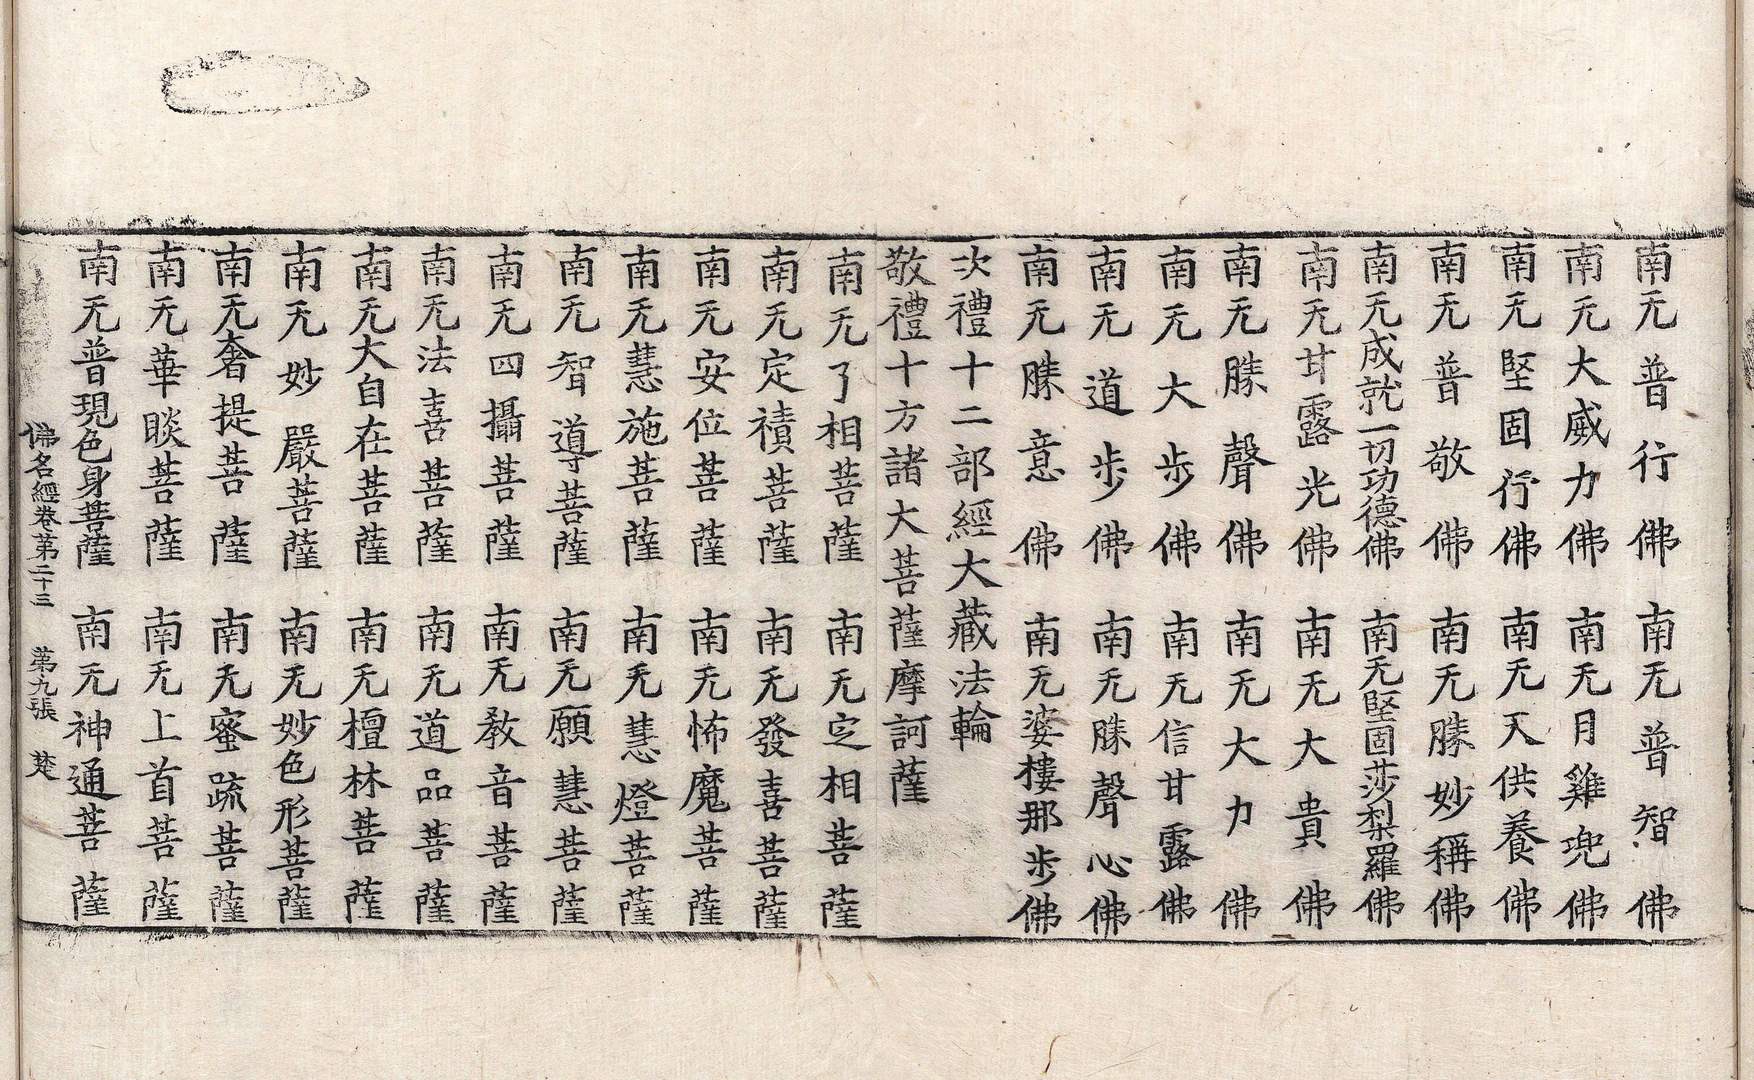 南无普行佛　南无普智佛
南无大威力佛　南无月雞兜佛
南无堅固行佛　南无天供養佛
南无普敬佛　南无勝妙稱佛
南无成就一切功德佛　南无堅固莎梨羅佛
南无甘露光佛　南无大貴佛
南无勝聲佛　南无大力佛
南无大步佛　南无信甘露佛
南无道步佛　南无勝聲心佛
南无勝意佛　南无婆樓那步佛
次禮十二部經大藏法輪
敬禮十方諸大菩薩摩訶薩
南无了相菩薩　南无定相菩薩
南无定積菩薩　南无發喜菩薩
南无安位菩薩　南无怖魔菩薩
南无慧施菩薩　南无慧燈菩薩
南无智導菩薩　南无願慧菩薩
南无四攝菩薩　南无教音菩薩
南无法喜菩薩　南无道品菩薩
南无大自在菩薩　南无檀林菩薩
南无妙嚴菩薩　南无妙色形菩薩
南无奢提菩薩　南无蜜疏菩薩
南无華睒菩薩　南无上首菩薩
南无普現色身菩薩　南无神通菩薩
佛名經卷第二十三　第九張　楚